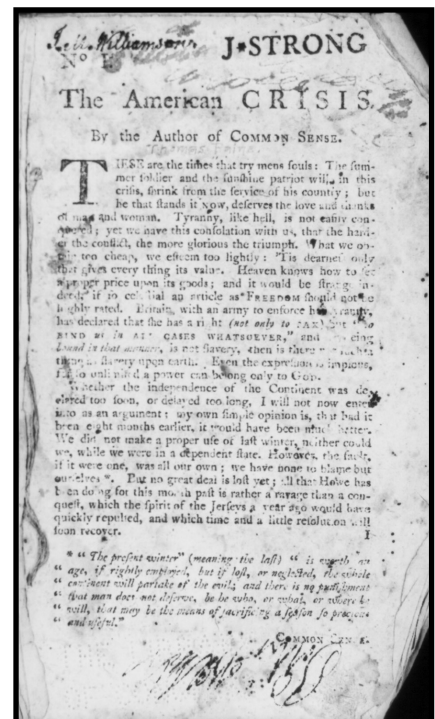 Williamson J*STRONG
No I
The American CRISIS.
By the Author of COMMON SENSE.
THESE are the times that try mens souls: The sum-
mer soldier and the sunshine patriot will, in this
crisis, shrink from the service of his country; but
he that stands it NOW, deserves the love and thanks
of man and woman. Tyranny, like hell, is not easily con-
quered; yet we have this consolation with us, that the hard-
er the conflict, the more glorious the triumph. What we ob-
tain too cheap, we esteem too lightly: 'Tis dearness only
that gives every thing its value. Heaven knows how to set
a proper price upon its goods; and it would be strange in-
deed, if so celestial an article as FREEDOM should not be
highly rated. Britain, with an army to enforce her tyranny,
has declared that she has a right (not only to TAX) but "to
BIND us in ALL CASES WHATSOEVER," and if being
bound in that manner, is not slavery, then is there not such a
thing as slavery upon earth. Even the expression is impious,
for so unlimited a power can belong only to GOD.
Whether the independence of the Continent was de-
clared too soon, or delayed too long, I will not now enter
into as an argument; my own simple opinion is, that had it
been eight months earlier, it would have been much better.
We did not make a proper use of last winter, neither could
we, while we were in a dependent state. However, the fault,
if it were one, was all our own; we have none to blame but
ourselves*. But no great deal is lost yet; all that Howe has
been doing for this month past is rather a ravage than a con-
quest, which the spirit of the Jerseys a year ago would have
quickly repulsed, and which time and a little resolution will
soon recover. I
* "The present winter" (meaning the last) "is worth an
"age, if rightly employed, but if lost, or neglected, the whole
"continent will partake of the evil; and there is no punishment
"that man does not deserve, be he who, or what, or where he
"will, that may be the means of sacrificing a season so precious
"and useful."
COMMON SENSE.